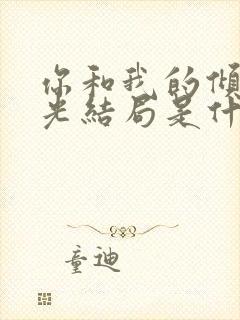 你和我的傾
光結局是什
童迪